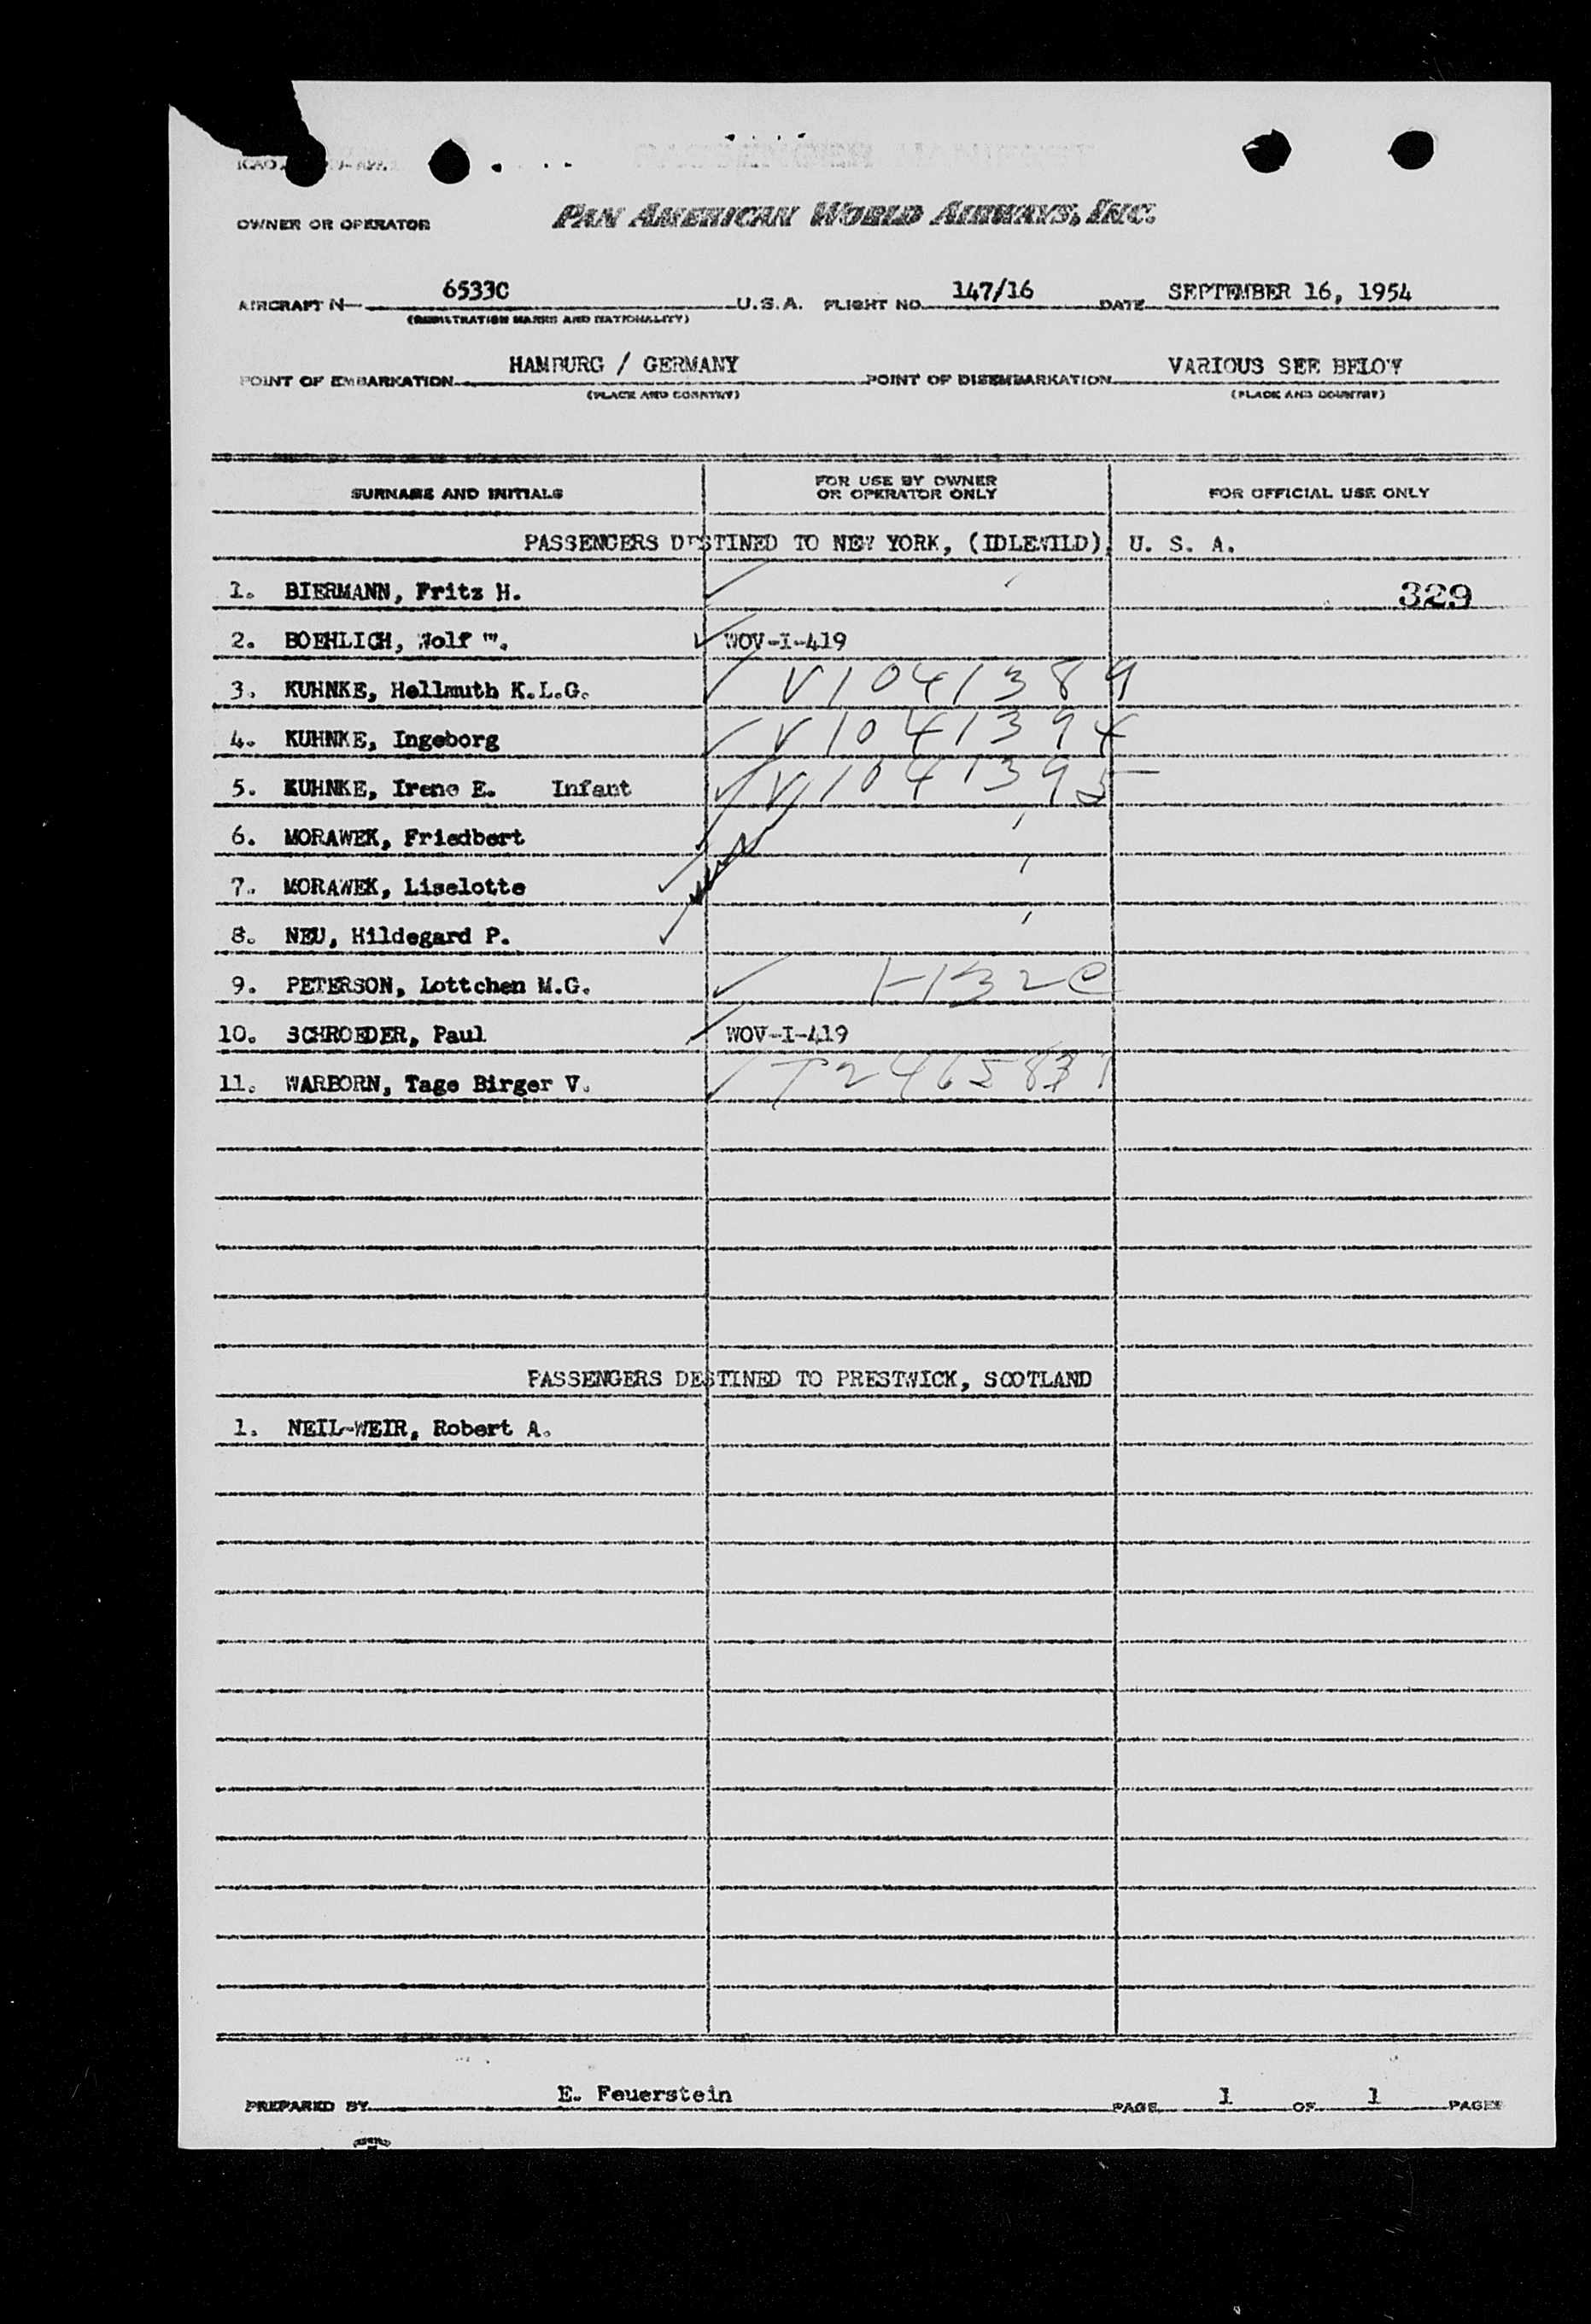 OWNER OR OPERATOR PAN AMERICAN WORLD AIRWAYS, INC.
AIRCRAFT N— 6533C U.S.A. FLIGHT NO. 147/16 DATE SEPTEMBER 16, 1954
(REGISTRATION MARKS AND NATIONALITY)
POINT OF EMBARKATION HAMBURG / GERMANY POINT OF DISEMBARKATION VARIOUS SEE BELOW
(PLACE AND COUNTRY) (PLACE AND COUNTRY)
SURNAME AND INITIALS FOR USE BY OWNER OR OPERATOR ONLY FOR OFFICIAL USE ONLY
PASSENGERS DESTINED TO NEW YORK, (IDLEWILD), U. S. A.
1. BIERMANN, Fritz H. 329
2. BOEHLICH, Wolf W. WOV-I-419
3. KUHNKE, Hellmuth K.L.G. V1041389
4. KUHNKE, Ingeborg V1041394
5. KUHNKE, Irene E. Infant V1041395
6. MORAWEK, Friedbert
7. MORAWEK, Liselotte
8. NEU, Hildegard P.
9. PETERSON, Lottchen M.G.
10. SCHROEDER, Paul WOV-I-419
11. WARBORN, Tage Birger V.
PASSENGERS DESTINED TO PRESTWICK, SCOTLAND
1. NEIL-WEIR, Robert A.
PREPARED BY E. Feuerstein PAGE 1 OF 1 PAGES